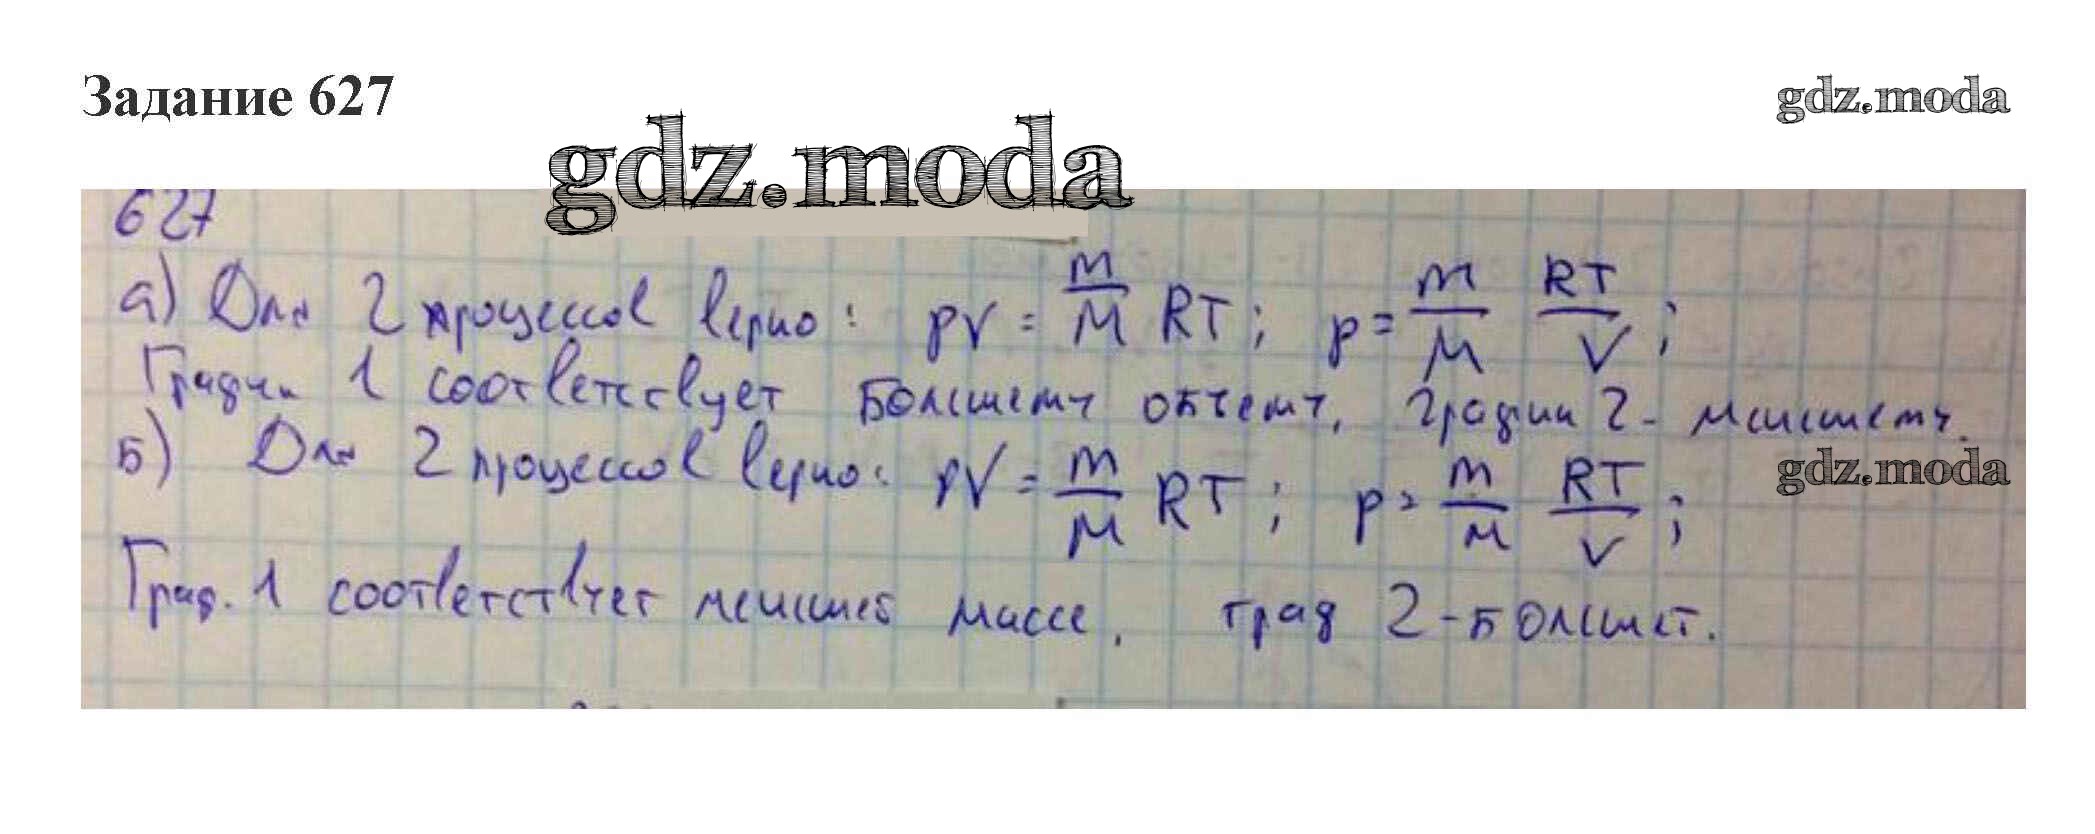 Задание 627
gdz.moda
gdz.moda
627
а) Для 2 процессов верно: pV = m/M RT; p = m/M RT/V;
График 1 соответствует большему объему, график 2 - меньшему.
б) Для 2 процессов верно: pV = m/M RT; p = m/M RT/V;
gdz.moda
Граф. 1 соответствует меньшей массе, граф 2 - большей.